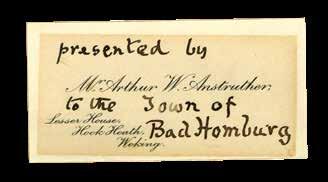 presented by
Mr. Arthur W. Anstruther,
to the Town of
Lesser House,
Hook Heath, Bad Homburg
Woking.